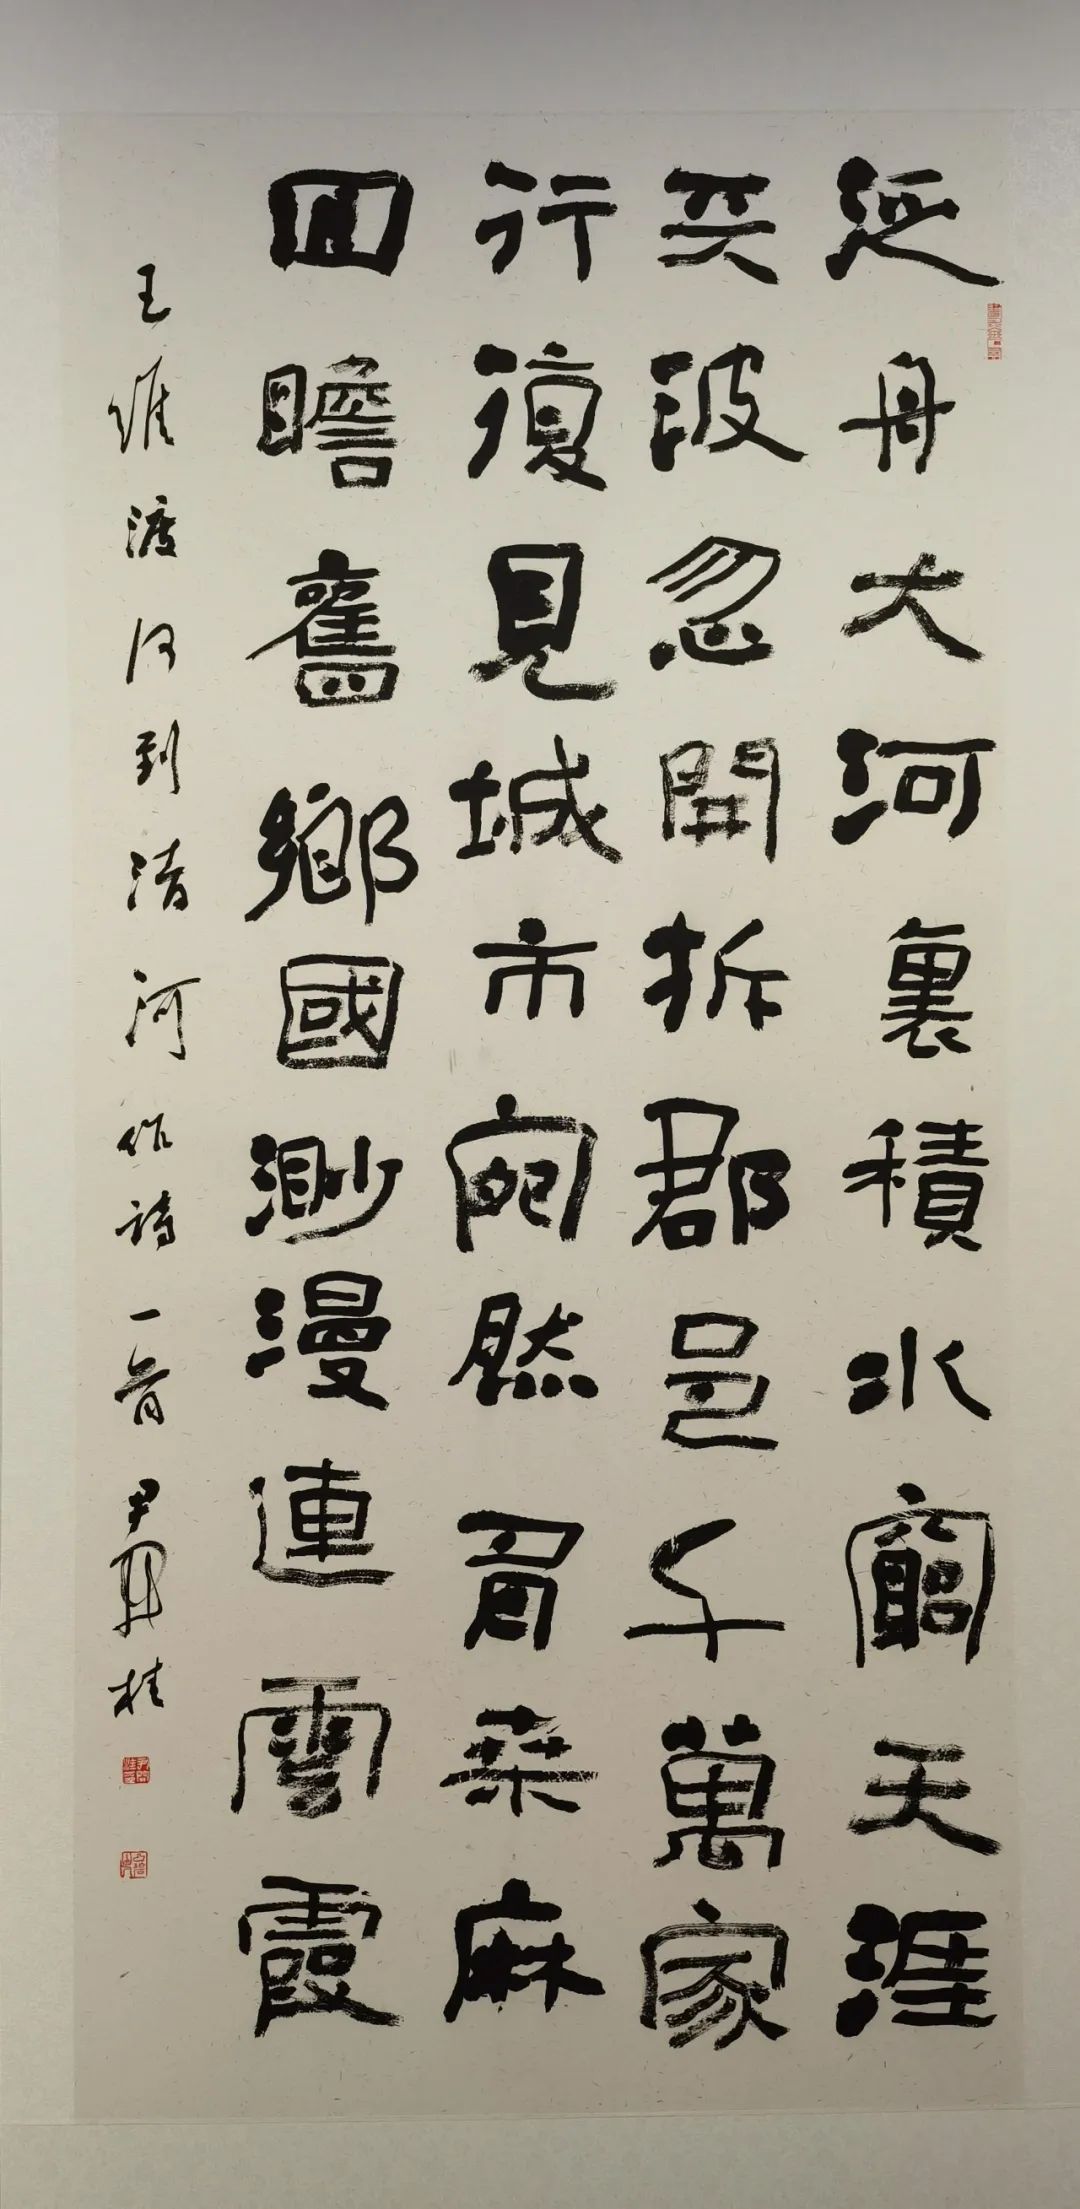 泛舟大河裏積水窮天涯
天波忽開拆郡邑千萬家
行復見城市宛然有桑麻
回瞻舊鄉國渺漫連雲霞
王維渡河到清河作詩一首 尹 桂